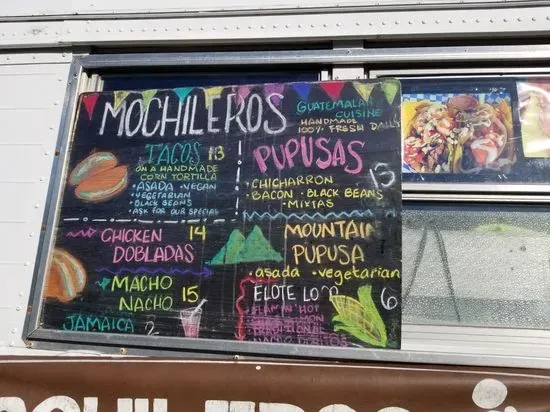 MOCHILEROS
GUATEMALAN
CUISINE
HANDMADE
100% FRESH DAILY
TACOS 13
ON A HANDMADE
CORN TORTILLA
• ASADA • VEGAN
VEGETARIAN
BLACK BEANS
• ASK FOR OUR SPECIAL
PUPUSAS
13
• CHICHARRON
BACON • BLACK BEANS
• MIXTAS
CHICKEN 14
DOBLADAS
MACHO
NACHO 15
JAMAICA 2
MOUNTAIN
PUPUSA
• asada • vegetarian
ELOTE LOCO 6
FLAMIN' HOT
TRADITIONAL